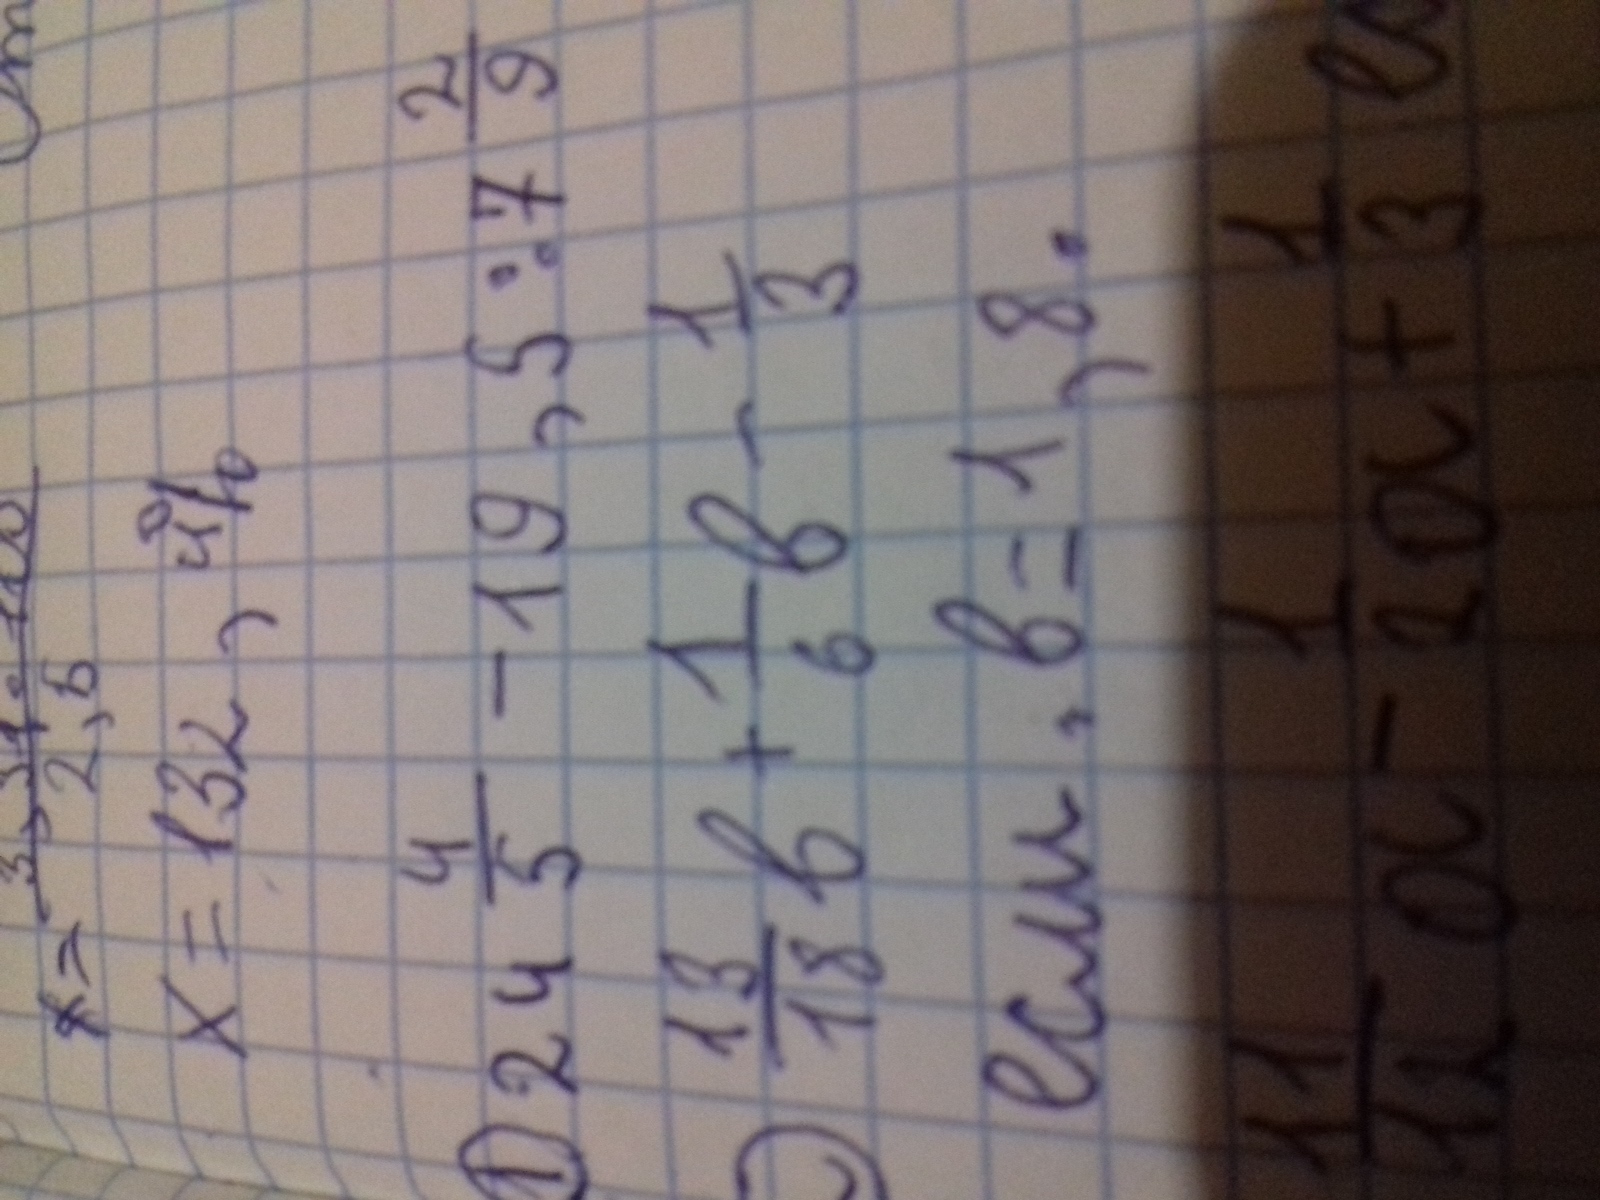 x = 3,31·100/2,5
x = 132,4%
① 24 4/5 - 19,5 : 7 2/9
13/18 в + 1/6 в - 1/3
если, в = 1,8.
11/12 а - 1/20 а + 1/3